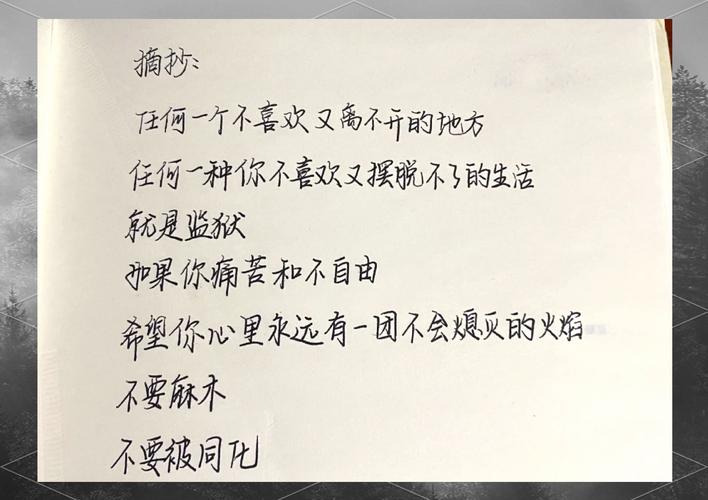 摘抄:
任何一个不喜欢又离不开的地方
任何一种你不喜欢又摆脱不了的生活
就是监狱
如果你痛苦和不自由
希望你心里永远有一团不会熄灭的火焰
不要麻木
不要被同化